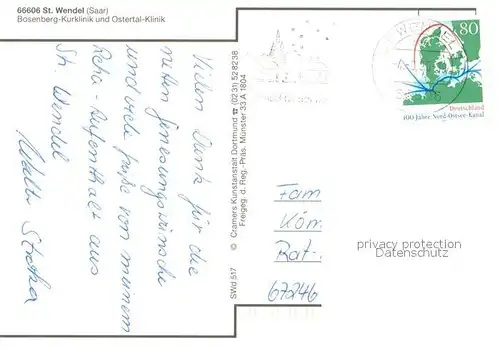 66606 St. Wendel (Saar)
Bosenberg-Kurklinik und Ostertal-Klinik
Vielen Dank für die
netten Genesungswünsche
und viele Grüße von meinem
Reha-Aufenthalt aus
St. Wendel
© Cramers Kunstanstalt Dortmund ☎ (0231) 528238
Freigeg. d. Reg.-Präs. Münster 33 A 1804
SWd 517
WENDEL
80
Deutschland
100 Jahre Nord-Ostsee-Kanal
Fam
Röm
Rat-
67246
privacy protection
Datenschutz